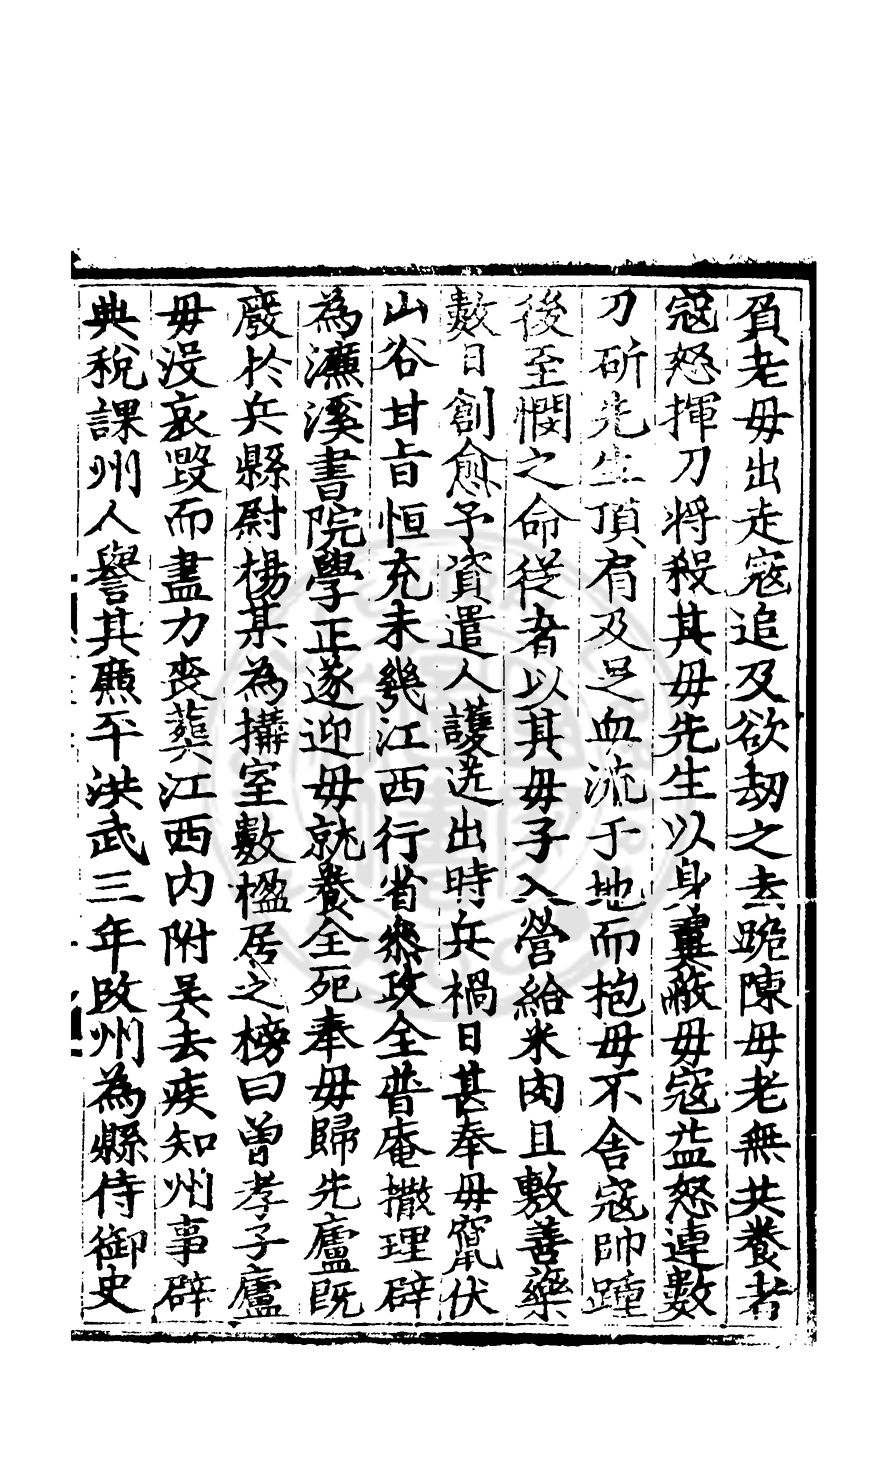 負老母出走寇追及欲刼之去跪陳母老無共養者
寇怒揮刀將殺其母先生以身翼蔽母寇益怒連數
刀斫先生頂肩及足血流于地而抱母不舍寇帥踵
後至憫之命從者以其母子入營給米肉且敷善藥
數日創愈予資遣人護送出時兵禍日甚奉母竄伏
山谷甘旨恒充未幾江西行省叅政全普庵撒理辟
為濂溪書院學正遂迎母就養全死奉母歸先廬既
廢於兵縣尉楊某為搆室數楹居之榜曰曾孝子廬
母沒哀毀而盡力喪葬江西內附吴去疾知州事辟
典稅課州人譽其廉平洪武三年改州為縣侍御史